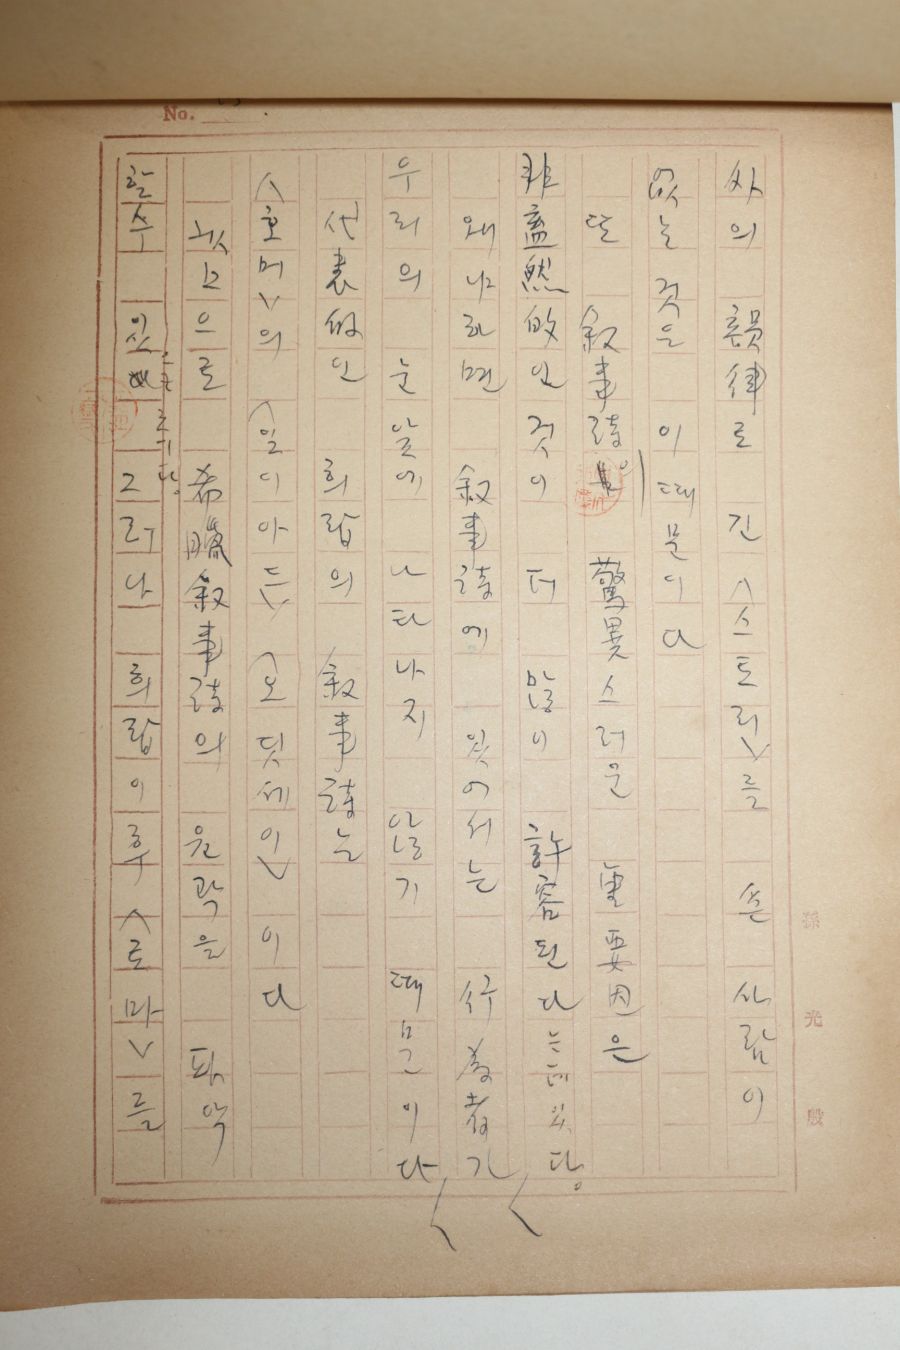 No.
外의 韻律로 긴 <스토리>를 쓴 사람이
없는 것은 이때문이다
또 敍事詩의 驚異스러운 重要因은
非蓋然的인 것이 더 많이 許容된다는데있다.
왜냐하면 敍事詩에 있어서는 行爲者가
우리의 눈앞에 나타나지 않기 때문이다
代表的인 희랍의 敍事詩는
<호머>의 <일이아드> <오딧세이> 이다
것으로 希臘敍事詩의 윤곽을 파악
할수 있
그러나 희랍이후 <로마>를
孫 光 殷